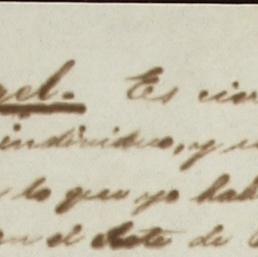 gel. Es cier
individuo, y u
lo que yo hab
en el Arte de